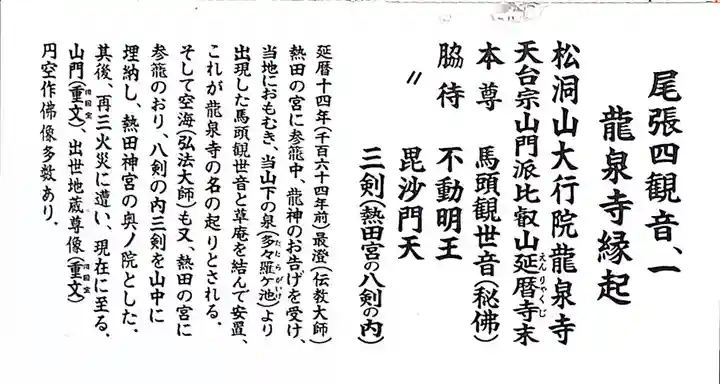 尾張四観音、一
龍泉寺縁起
松洞山大行院龍泉寺
天台宗山門派比叡山延暦寺末
えんりゃくじ
本尊 馬頭観世音(秘佛)
脇待 不動明王
〃 毘沙門天
三剣(熱田宮の八剣の内)
延暦十四年(千百六十四年前)最澄(伝教大師)
熱田の宮に参籠中、龍神のお告げを受け、
当地におもむき、当山下の泉(多々羅ケ池)より
たたらがいけ
出現した馬頭観世音と草庵を結んで安置、
これが龍泉寺の名の起りとされる.
そして空海(弘法大師)も又、熱田の宮に
参籠のおり、八剣の内三剣を山中に
埋納し、熱田神宮の奥ノ院とした.
其後、再三火災に遭い、現在に至る.
山門(重文)、出世地蔵尊像(重文)
旧国宝 旧国宝
円空作佛像多数あり.